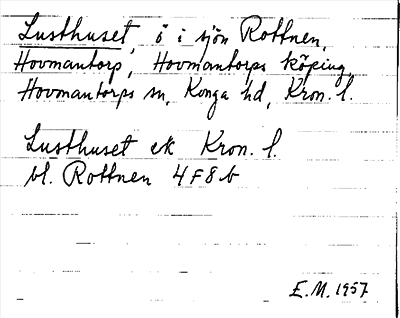 Lusthuset, ö i sjön Rottnen,
Hovmantorp, Hovmantorps köping,
Hovmantorps sn, Konga hd, Kron. l.
Lusthuset ek Kron. l.
bl. Rottnen 4F8b
E.M. 1957